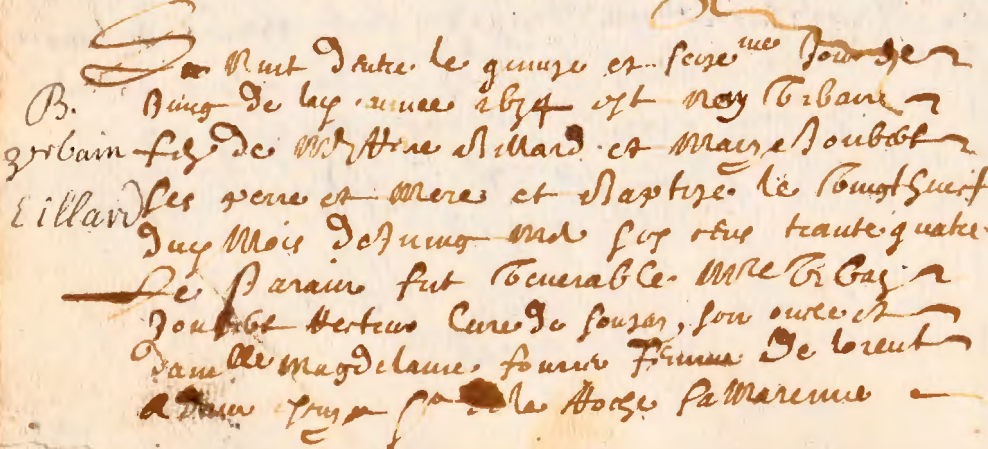 La Nuit d'entre le quinze et seize me Jour de
Juing de lad annee 1634 est Nay Vrbain
B.
Vrbain
Lillard
filz de Me Rene Lillard et Marye Joubert
ses pere et Mere et Baptize le Vingt huict
dud Mois de Juing Mil six cens trante quatre
Le Parain fut Venerable Mre Vrbain
Joubert Recteur Cure de son oncle et
Dam lle Magdelaine femme De
de la Roche sa Marenne